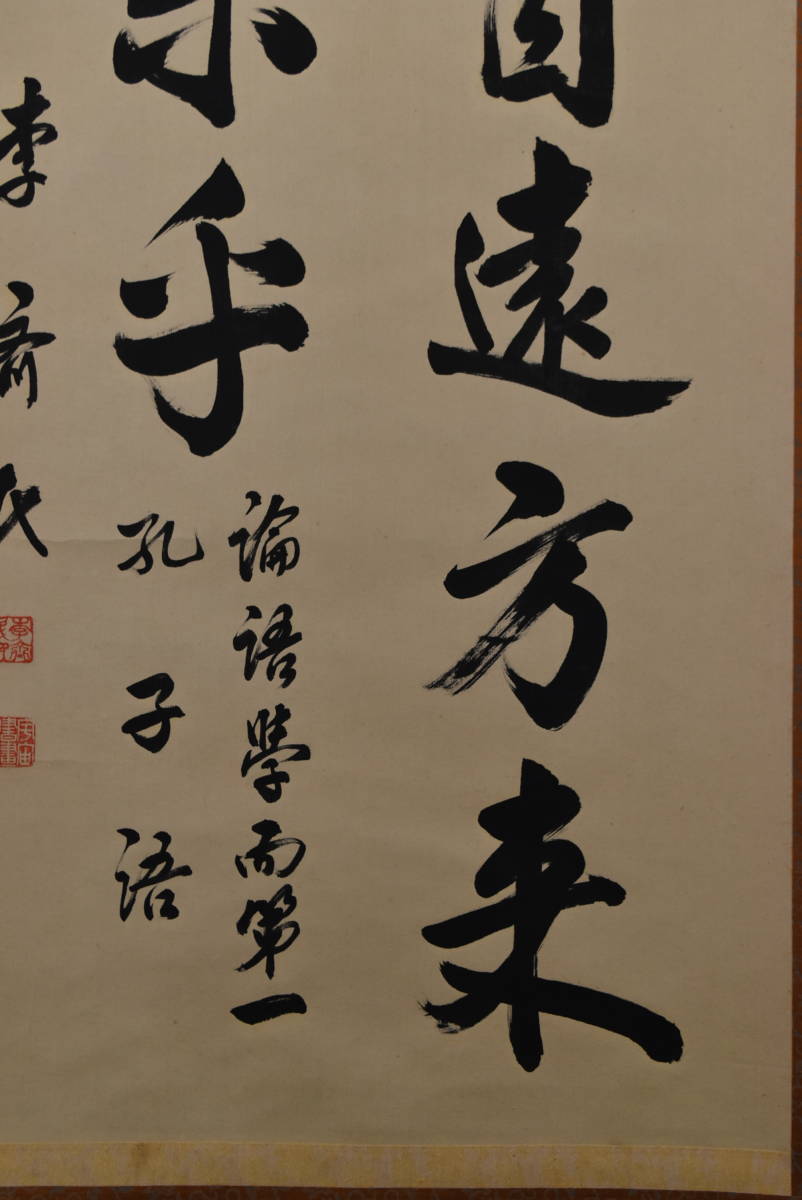 自遠方来
樂乎
論語學而第一
孔子語
李齊民